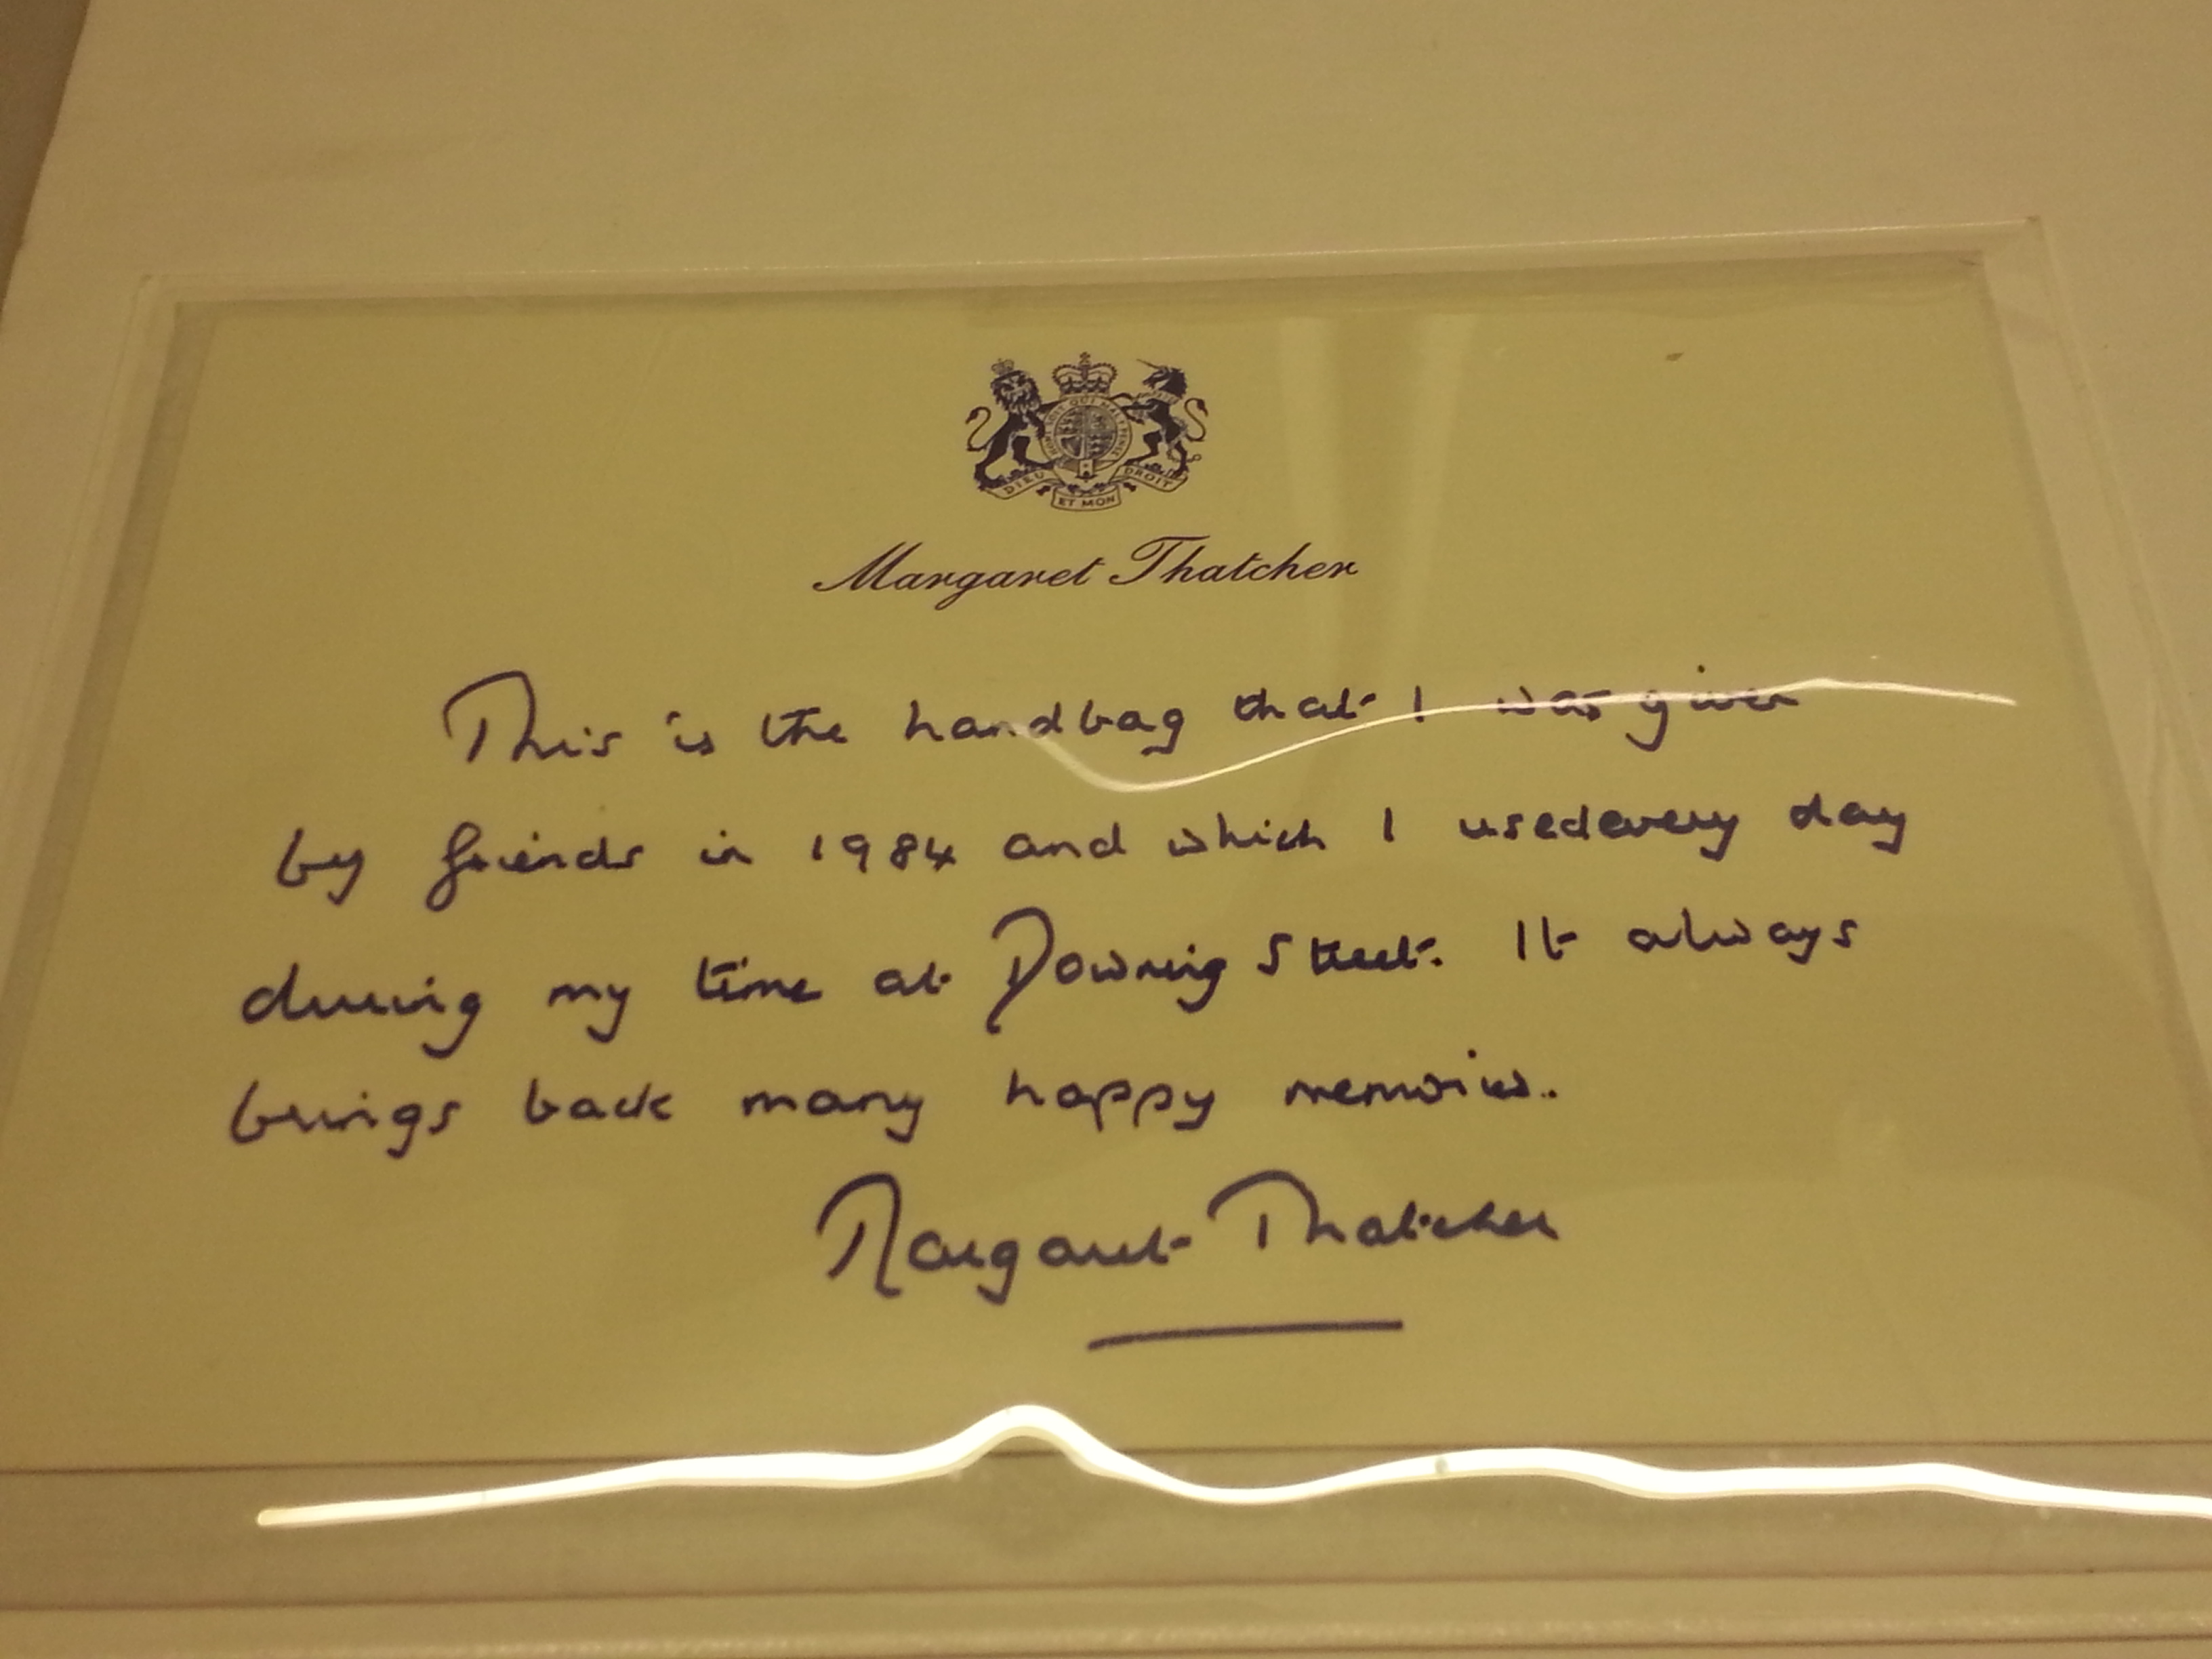 HONI SOIT QUI MAL Y PENSE
DIEU ET MON DROIT
Margaret Thatcher
This is the handbag that I was given
by friends in 1984 and which I used every day
during my time at Downing Street. It always
brings back many happy memories.
Margaret Thatcher